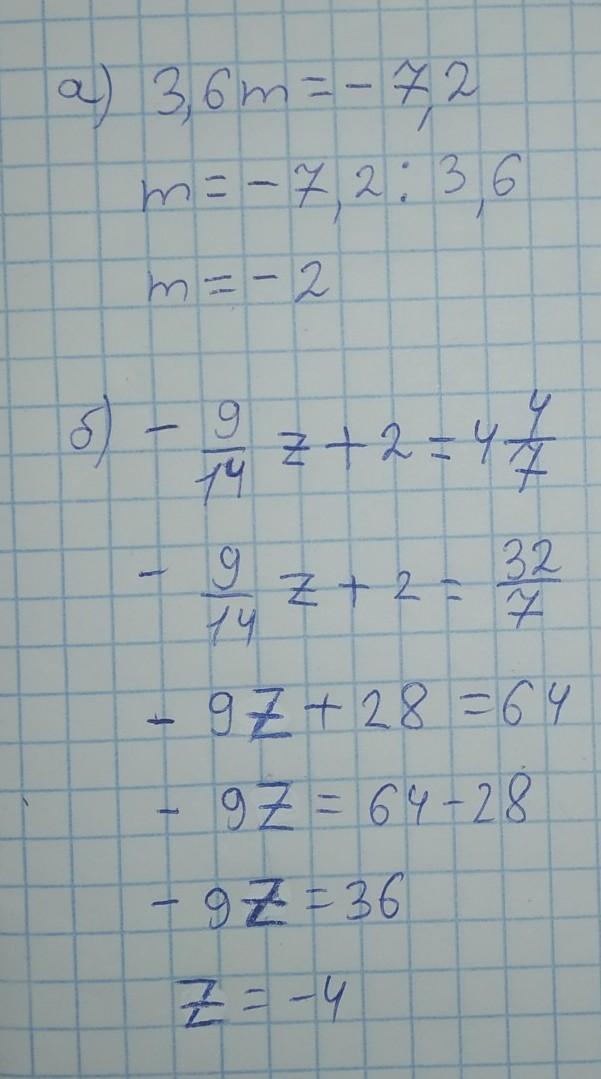 а) 3,6m = - 7,2
m = - 7,2 : 3,6
m = - 2
б) - 9/14 z + 2 = 4 4/7
- 9/14 z + 2 = 32/7
- 9z + 28 = 64
- 9z = 64 - 28
- 9z = 36
z = - 4